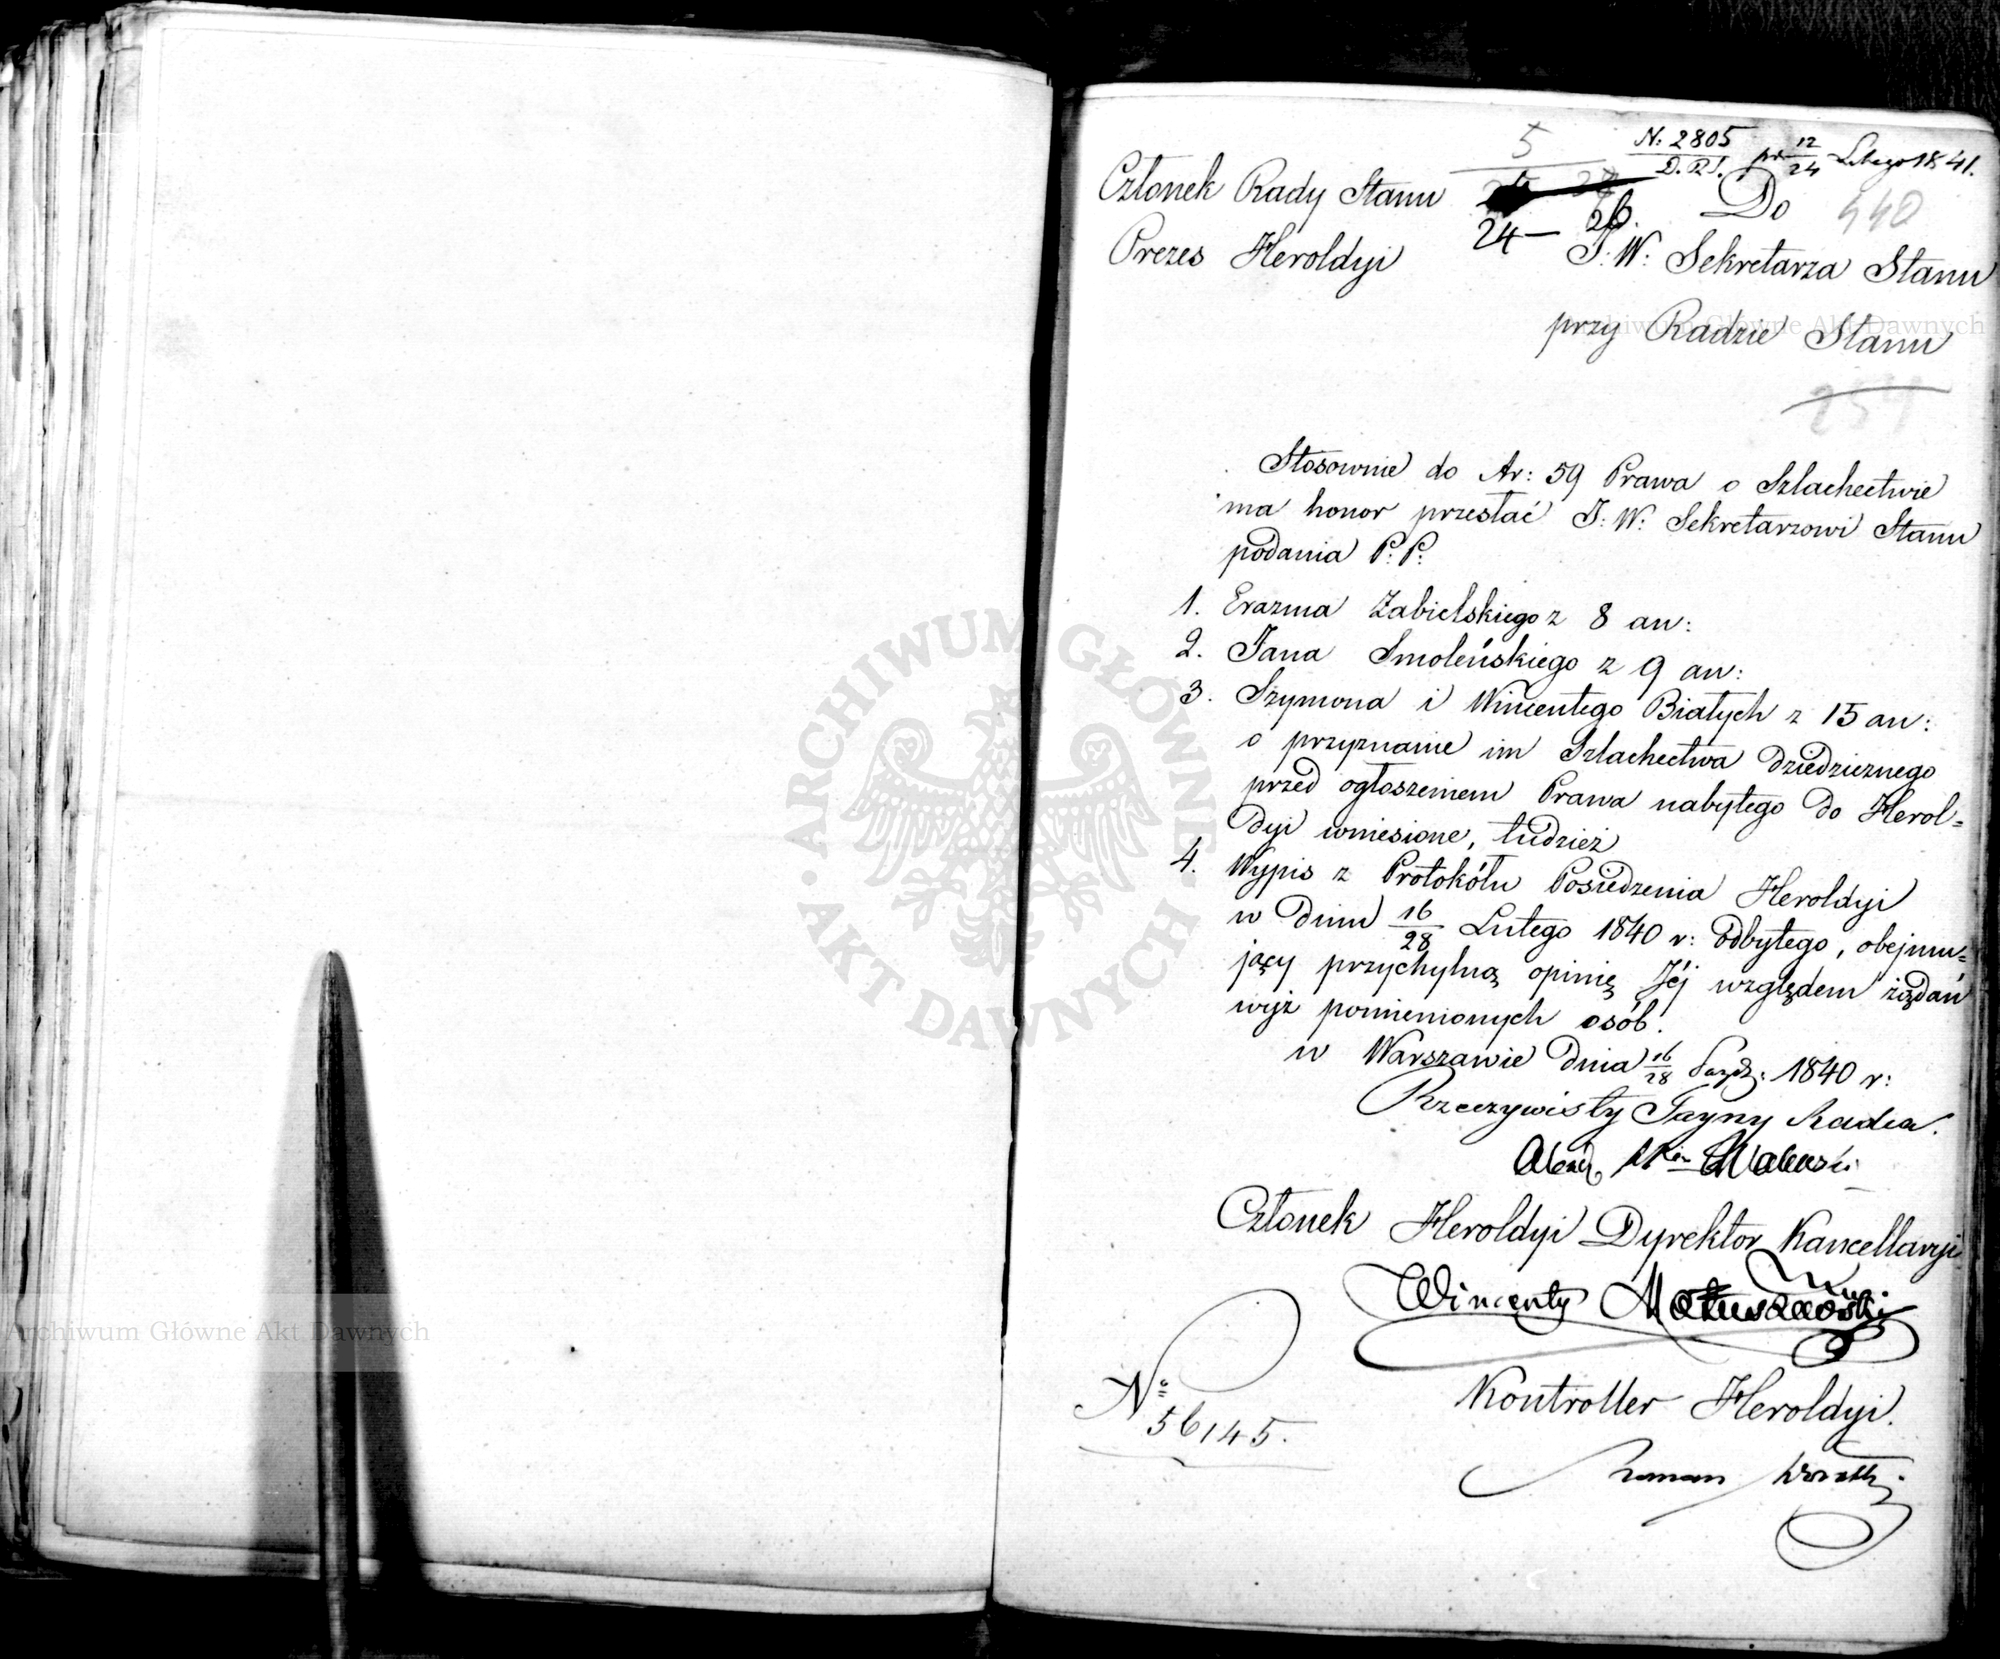 5
N: 2805
D.R.S. pr 12/24 Lutego 1841.
Członek Rady Stanu
24 — 26. Do 440
Prezes Heroldyi
J: W: Sekretarza Stanu
przy Radzie Stanu
Stosownie do Ar: 59 Prawa o Szlachectwie
ma honor przesłać J: W: Sekretarzowi Stanu
podania P: P:
1. Erazma Zabielskiego z 8 an:
2. Jana Smoleńskiego z 9 an:
3. Szymona i Wincentego Białych z 15 an:
o przyznanie im Szlachectwa dziedzicznego
przed ogłoszeniem Prawa nabytego do Herol=
dyi wniesione, tudzież
4. Wypis z Protokółu Posiedzenia Heroldyi
w dniu 16/28 Lutego 1840 r: odbytego, obejmu=
jący przychylną opinię Jéj względem żądań
wyż pomienionych osób.
w Warszawie dnia 16/28 Paźdz: 1840 r:
Rzeczywisty Tayny Radca.
Członek Heroldyi Dyrektor Kancellaryi
Wincenty Matuszewski
No 56145.
Kontroller Heroldyi.
Roman
Archiwum Główne Akt Dawnych
Archiwum Główne Akt Dawnych
ARCHIWUM GŁÓWNE
AKT DAWNYCH